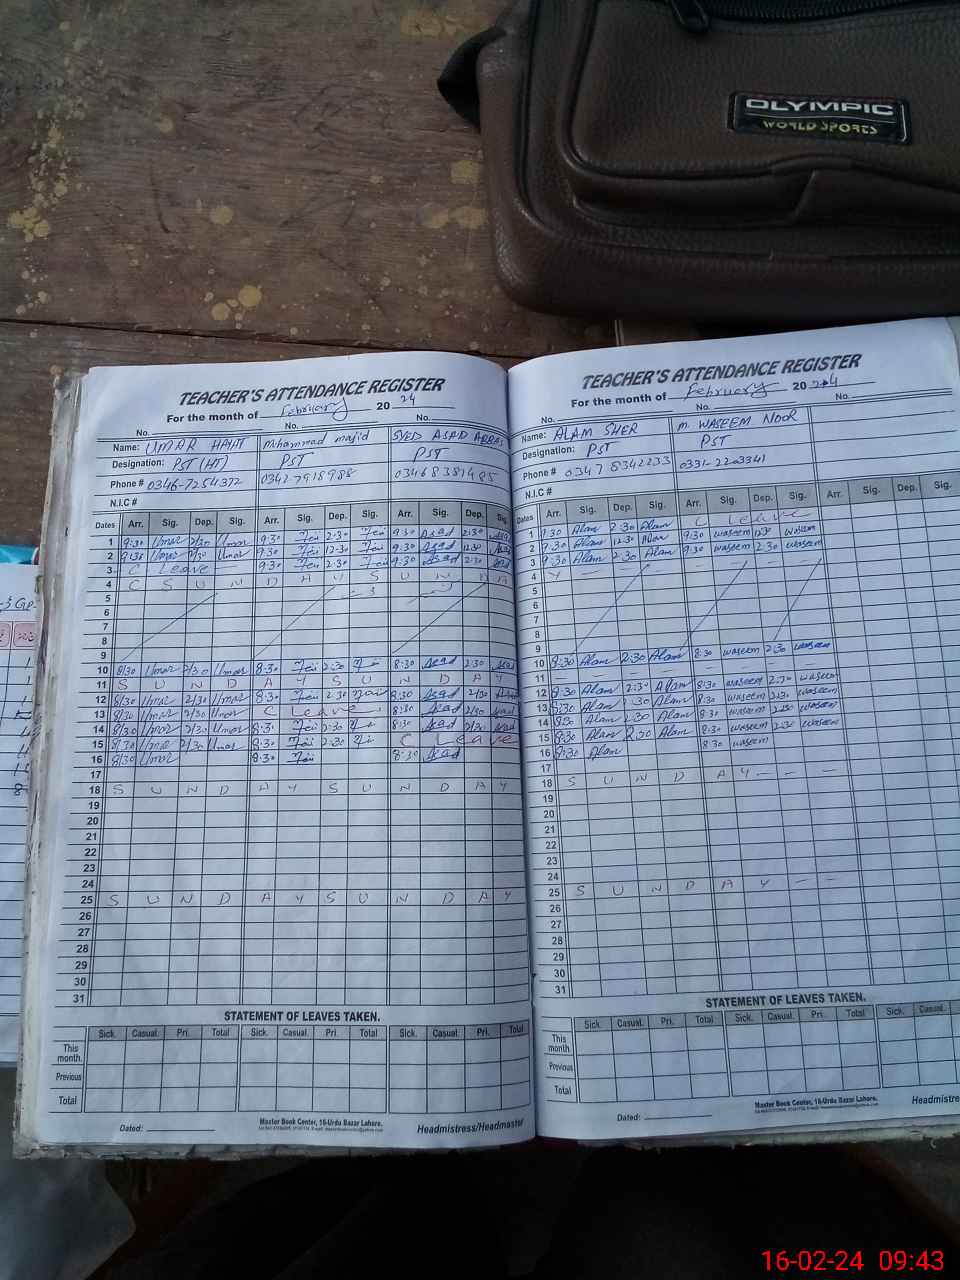 OLYMPIC
WORLD SPORTS
TEACHER'S ATTENDANCE REGISTER
For the month of February 2024
No. No. No.
Name: UMAR HAYAT Muhammad majid SYED ASAD ABBAS
Designation: PST (HT) PST PST
Phone # 0346-7254372 03427918988
N.I.C #
Dates Arr. Sig. Dep. Sig. Arr. Sig. Dep. Sig. Arr. Sig. Dep. Sig.
1 9:30 Umar 2/30 Umar 9:30 2:30 9:30 Asad 2:30
2 9:30 Umar Umar 9:30 12:30 9:30 Asad 12:30 Asad
3 C Leave 9:30 2:30 9:30 Asad 2:30 Asad
4 C S U N D A Y S U N D A
5
6
7
8
9
10 8/30 Umar 2/30 Umar 8:30 2:30 8:30 Asad 2:30 Asad
11 S U N D A Y S U N D A Y
12 8/30 Umar 2/30 Umar 8:30 2:30 8:30 Asad 2/30
13 8/30 Umar 2/30 Umar C Leave 8:30 Asad 2/30 Asad
14 8/30 Umar 2/30 Umar 8:30 2:30 8:30 Asad 2/30 Asad
15 8/30 Umar 2/30 Umar 8:30 2:30 C Leave
16 8/30 Umar 8:30 8:30 Asad
17
18 S U N D A Y S U N D A Y
19
20
21
22
23
24
25 S U N D A Y S U N D A Y
26
27
28
29
30
31
STATEMENT OF LEAVES TAKEN.
Sick. Casual. Pri. Total Sick. Casual. Pri. Total Sick. Casual. Pri. Total
This month.
Previous
Total
Master Book Center, 16-Urdu Bazar Lahore.
Dated: Headmistress/Headmaster
TEACHER'S ATTENDANCE REGISTER
For the month of February 2024
No. No. No.
Name: ALAM SHER M. WASEEM NOOR
Designation: PST PST
Phone # 0347 8342233 0331-2203341
N.I.C #
Dates Arr. Sig. Dep. Sig. Arr. Sig. Dep. Sig. Arr. Sig. Dep. Sig.
1 9:30 Alam 2:30 Alam C Leave
2 9:30 Alam 12:30 Alam 9:30 waseem 12:30 waseem
3 9:30 Alam 2:30 Alam 9:30 waseem 2:30 waseem
4 Y
5
6
7
8
9
10 8:30 Alam 2:30 Alam 8:30 waseem 2:30 waseem
11
12 8:30 Alam 2:30 Alam 8:30 waseem 2:30 waseem
13 8:30 Alam 2:30 Alam 8:30 waseem 2:30 waseem
14 8:30 Alam 2:30 Alam 8:30 waseem 2:30 waseem
15 8:30 Alam 2:30 Alam 8:30 waseem 2:30 waseem
16 8:30 Alam 8:30 waseem
17
18 S U N D A Y
19
20
21
22
23
24
25 S U N D A Y
26
27
28
29
30
31
STATEMENT OF LEAVES TAKEN.
Sick. Casual. Pri. Total Sick. Casual. Pri. Total Sick. Casual
This month.
Previous
Total
Master Book Center, 16-Urdu Bazar Lahore.
Dated: Headmistress
16-02-24 09:43